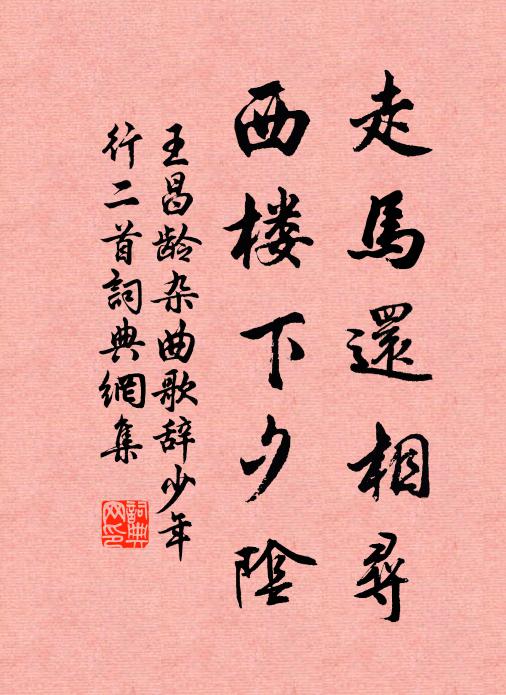 走馬還相尋
西楼下夕陰
王昌龄杂曲歌辞少年
行二首詞典網集
詞典网印